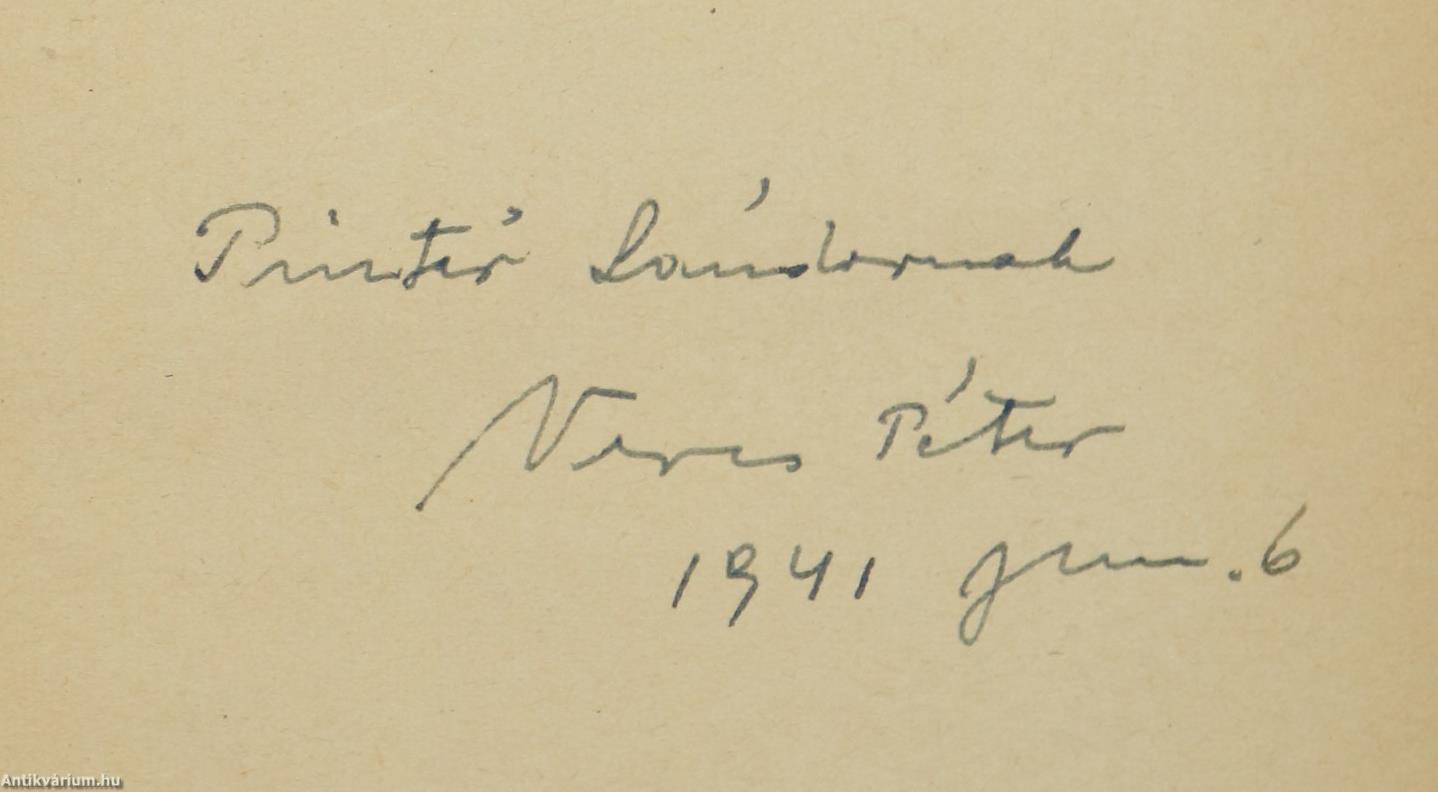 Pintér Sándornak
Veres Péter
1941 jun. 6
Antikvárium.hu